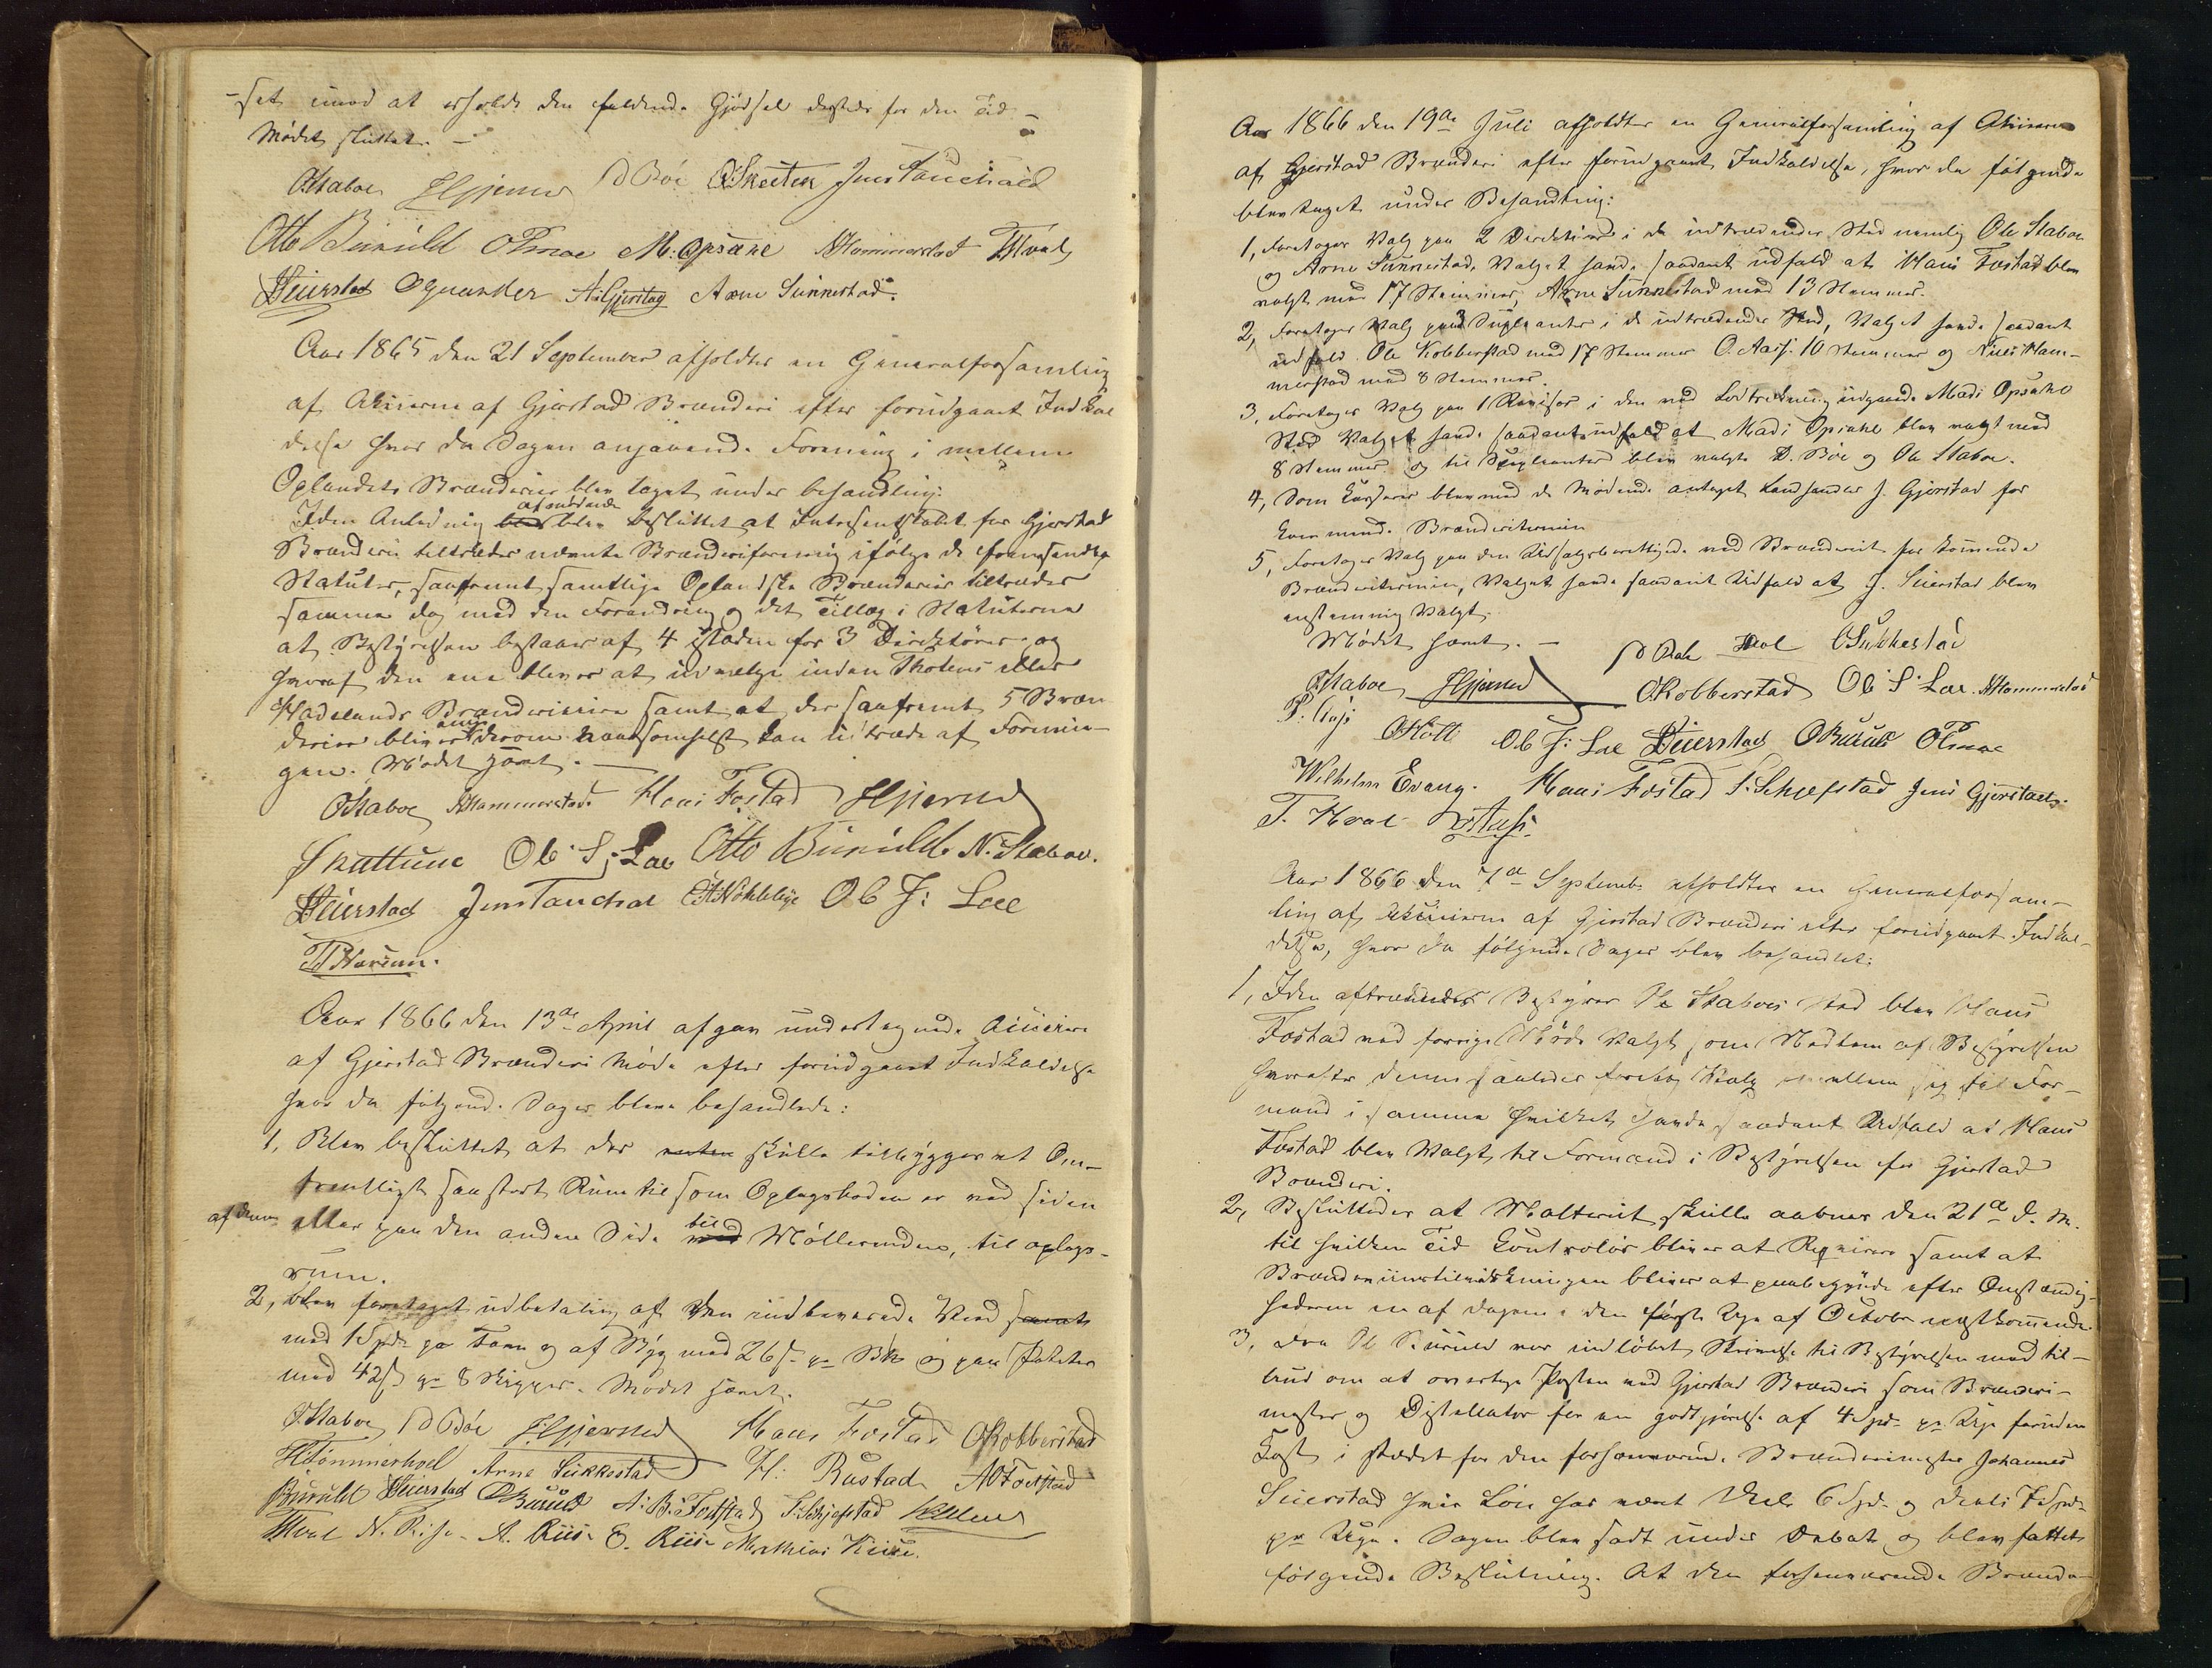 -set imod at erholde den faldende Gjödsel derstede for den Tid –
Mödet sluttet. –
OStaboe HGjerne D Böe OSkeiten Jens Tandsæd
Otto Buruld OTmoe M. Opsahl AHammerstad THval
JSeierstad A. Gjerstag Arne Sukkestad.
Aar 1865 den 21 September afholdtes en Generalforsamling
af Actierne af Gjerstad Brænderi efter forudgaaet Indkal
delse hvor da Sagen angaaende Forening i mellem
Oplandets Brænderier blev taget under behandling:
I den Anledning afmödende blev besluttet at Interesentskabet for Gjerstad
Brænderi tiltræder nævnte Brænderiforening ifölge de fremsendte
Statuter, saafremt samtlige Oplandske Brænderier tiltræder
samme dog med den Forandring og det Tillæg i Statuterne
at Bestyrelsen bestaaer af 4 istæden for 3 Direktörer og
hvoraf den ene bliver at udvælge inden Thotens eller
Hadelands Brænderierne samt at der saafremt 5 Bræn
derier bliver enig derom naarsomhelst kan udtræde af Forenin-
gen. Mödet hævet. –
OStaboe AHammerstad. Hans Fostad HGjerne
Skattum Ole S: Lae Otto Buruld N. Staboe.
JSeierstad Jens Tandsæd Ole J: Lae
Aar 1866 den 13de April afgav undertegnede Actieiere
af Gjerstad Brænderi Möde efter forudgaaet Indkaldelse
hvor da fölgende Sager bleve behandlede:
1, Blev besluttet at der skulle tilbygges et Om-
trentligt saa stort Rum til som Oplagsboden er ved siden
af denne eller paa den anden Side til Möllerenden, til oplags-
rum.
2, blev foretaget udbetaling af den indleverede Ved
med 1 Spd pr Favn og af Byg med 26 s. pr Bk og paa Poteter
med 42 s pr 8 Skjepper. Mödet hævet.
OStaboe D Böe HGjerne Hans Fostad OKobberstad
HTömmerhol Arne Sukkestad H: Rustad AOFodstad
Buruld JSeierstad OBuruld A: B: Fodstad S. Schjefstad
THval N. Rise. A. Riise E. Riise Mathias Kiise.
Aar 1866 den 19de Juli afholdtes en Generalforsamling af Actieierne
af Gjerstad Brænderi efter forudgaaet Indkaldelse, hvor da fölgende
blev taget under Behandling:
1, Foretoges Valg paa 2 Direktörer i de udtrædendes Sted nemlig Ole Staboe
og Arne Sukkestad, Valget havde saadant udfald at Hans Fostad blev
valgt med 17 Stemmer, Arne Sukkestad med 13 Stemmer.
2, Foretoges Valg paa 3 Suppleanter i de udtrædendes Sted, Valget havde saadant
udfald Ole Kobberstad med 17 Stemmer O. Aass. 10 Stemmer og Niels Ham-
merstad med 8 Stemmer.
3, Foretoges Valg paa 1 Revisor i den ved Lodtrækning udgaaede Madi Opsahl
Sted Valget havde saadant udfald at Madi Opsahl blev valgt med
8 Stemmer og til Suppleanter blev valgte D. Böe og Ole Staboe.
4, Som Kasserer blev med de Mödende antaget Landhandler J. Gjerstad for
kommende Brænderitermin
5, Foretoges Valg paa den Udsalgsberettigede ved Brænderiet for kommende
Brænderitermin, Valget havde saadant Udfald at J. Seierstad blev
enstemmig Valgt.
Mödet hævet. –
OStaboe HGjerne OKobberstad Ole S: Lae. AHammerstad
Ole J: Lae JSeierstad OBuruld OTmoe
Wilhelm Evang. Hans Fostad S. Schjefstad Jens Gjerstad.
T. Hval
Aar 1866 den 7de Septembr afholdtes en Generalforsam-
ling af Actieierne af Gjerstad Brænderi efter forudgaaet Indkal-
delse, hvor da fölgende Sager blev behandlet:
1, I den aftrædendes Bestyrer Ole Staboes sted blev Hans
Fostad ved forrige Möde Valgt som Medlem af Bestyrelsen
hvorefter denne saaledes foretog Valg mellem sig til For-
mand i samme hvilket havde saadant Udfald at Hans
Fostad blev Valgt til Formand i Bestyrelsen for Gjerstad
Brænderi.
2, Besluttedes at Malteriet skulle aabnes den 21de d. M.
til hvilken Tid Kontrolör bliver at Reqvirere samt at
Brændeviinstilvirkningen bliver at paabegynde efter Omstændig-
hederne en af dagene i den förste Uge af October næstkommende
3, Fra Ole Buruld var indlöbet Skrivelse til Bestyrelsen med til-
bud om at overtage Posten ved Gjerstad Brænderi som Brænderi-
mester og Distellatör for en godtgjörelse af 4 Spd. pr Uge foruden
Kost i stædet for den forhenværende Brænderimester Johannes
Seierstad hvis Lön har været deels 6 Spd. og deels 7 Spd.
pr Uge. Sagen blev sadt under Debat og blev fattet
fölgende Beslutning. At den forhenværende Brænde-